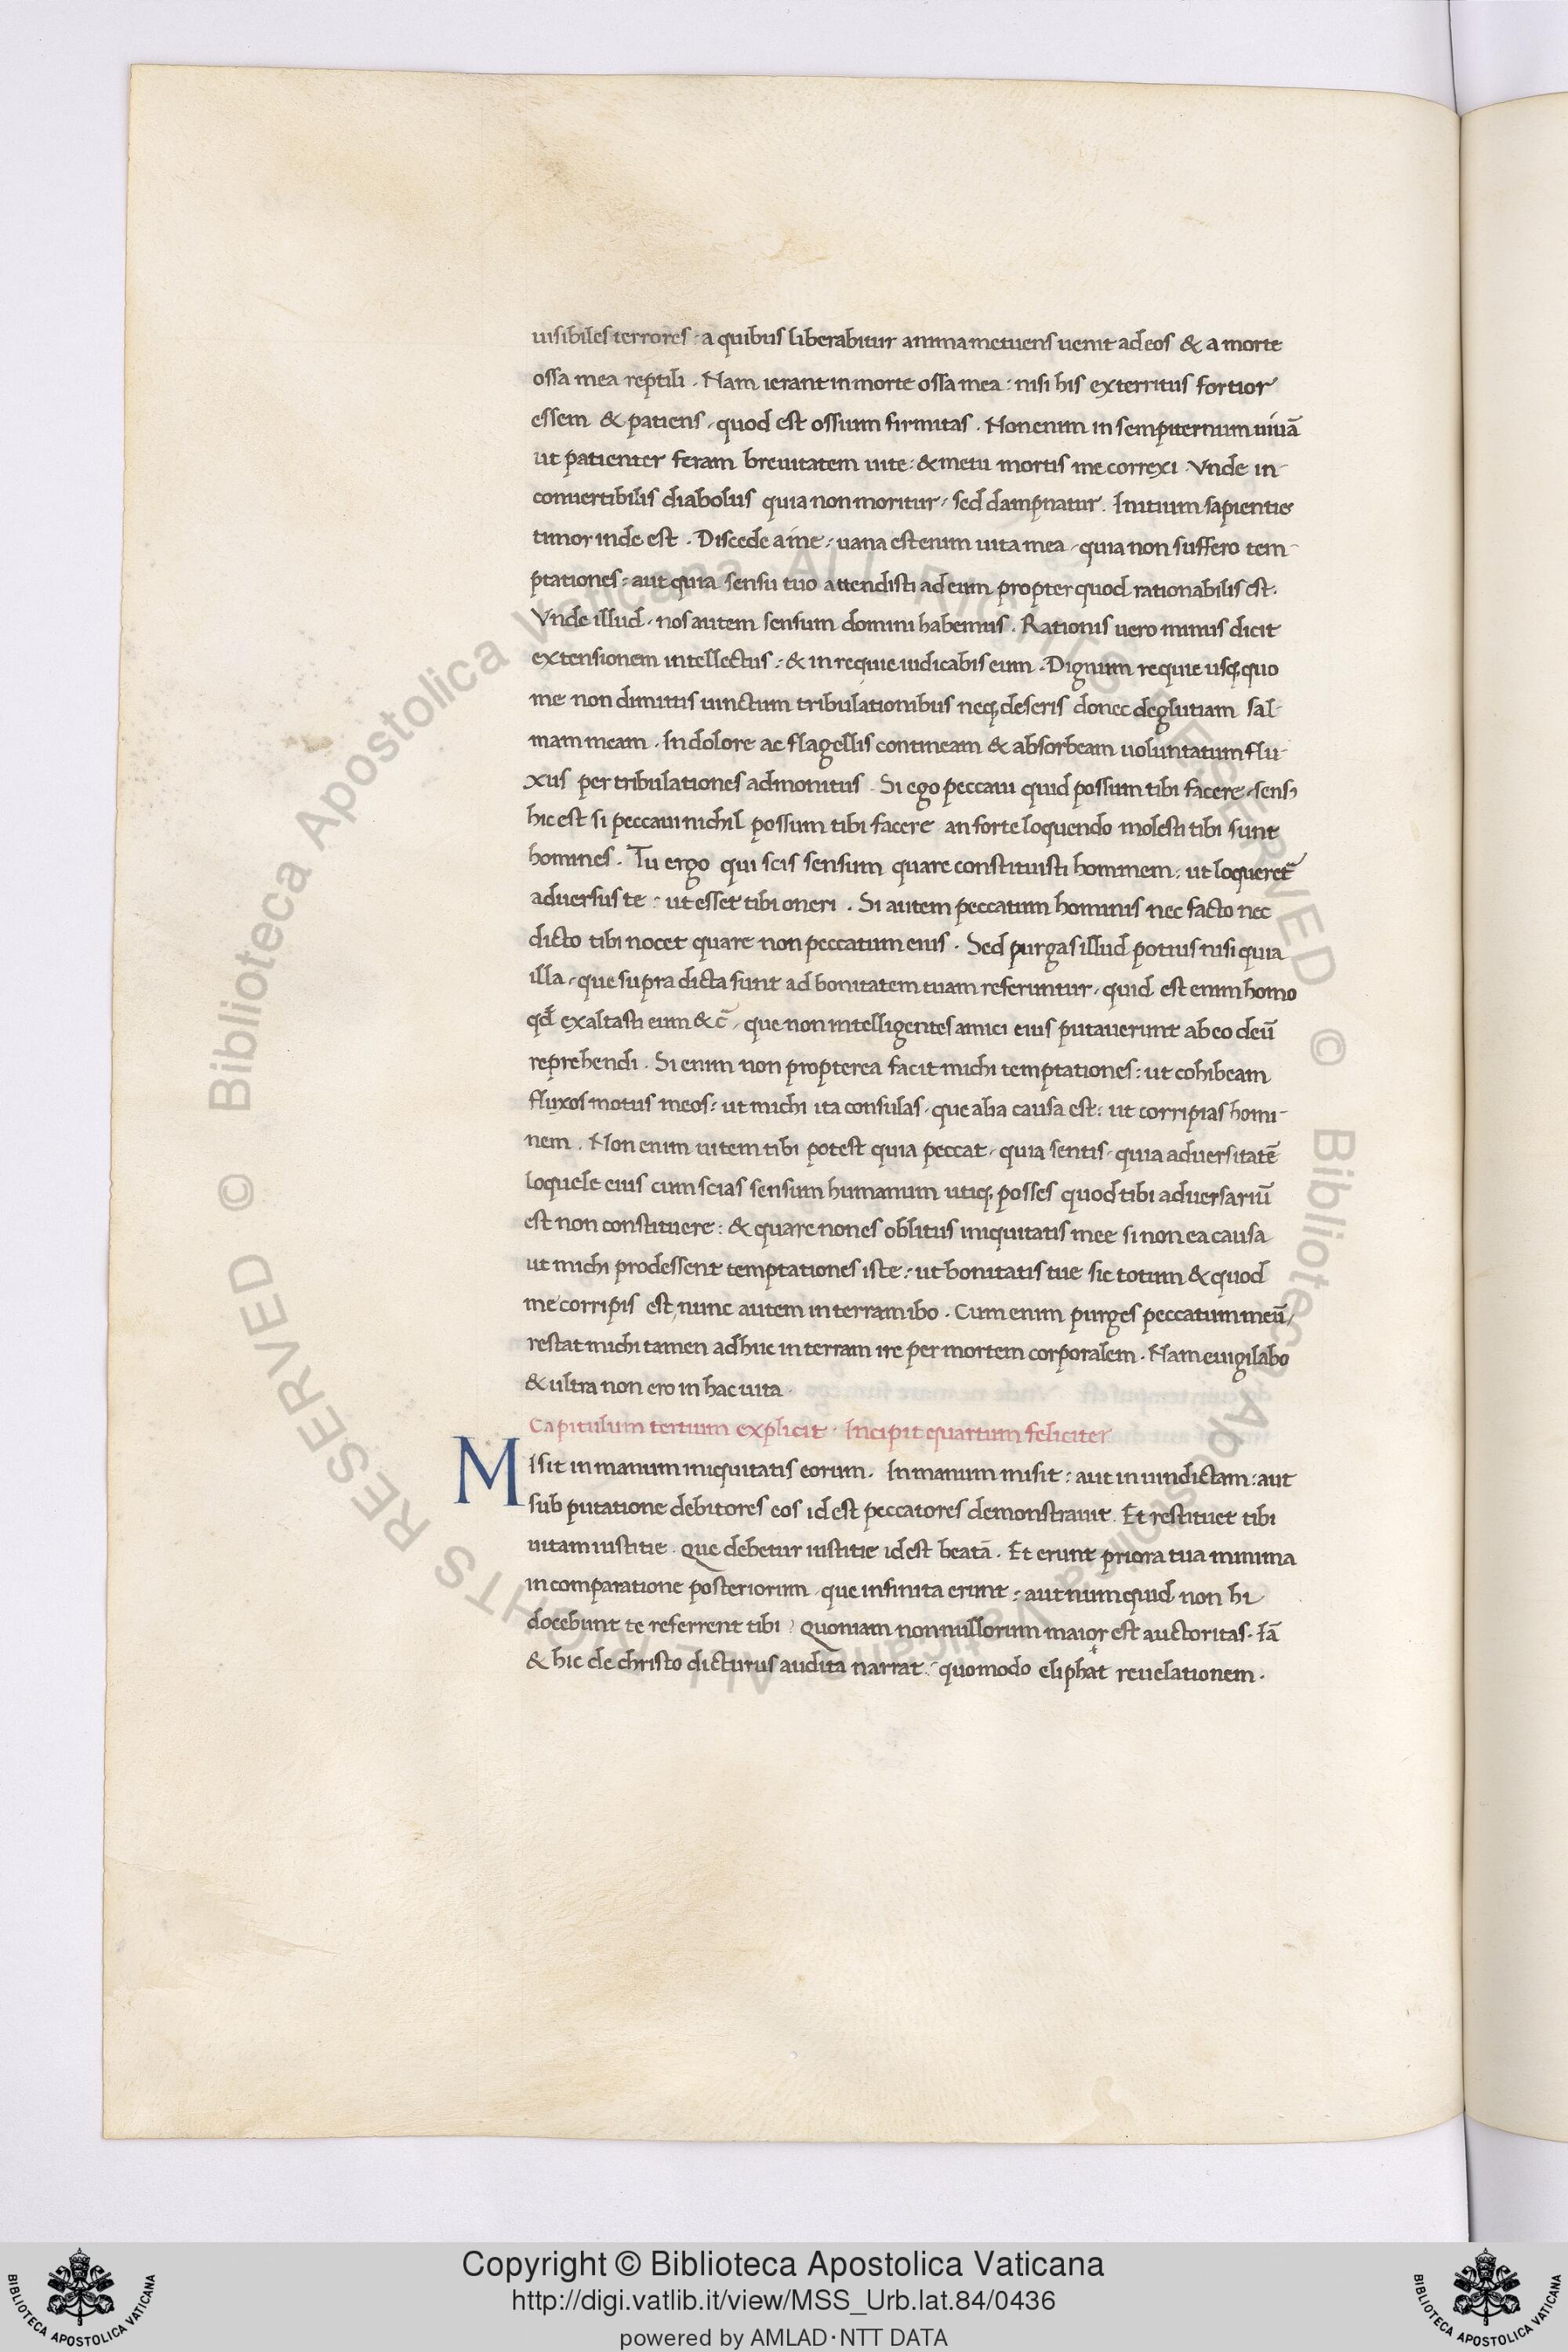 uisibiles terrores : a quibus liberabitur anima metuens uenit ad eos & a morte
ossa mea reptili . Nam ierant in morte ossa mea : nisi his exterritus fortior
essem & patiens , quod est ossium firmitas . Non enim in sempiternum uiuā
ut patienter feram breuitatem uite : & metu mortis me correxi . Vnde in-
conuertibilis diabolus quia non moritur , sed dampnatur . Initium sapientie
timor inde est . Discede a me : uana est enim uita mea , quia non suffero tem-
ptationes : aut quia sensu tuo attendisti ad eum propter quod rationabilis est .
Vnde illud , nos autem sensum domini habemus . Rationis uero munus dicit
extensionem intellectus : & in requie iudicabis eum . Dignum requie usq; quo
me non dimittis uinctum tribulationibus neq; deseris donec deglutiam sal-
mam meam . In dolore ac flagellis contineam & absorbeam uoluntatum flu-
xus per tribulationes admonitus . Si ego peccaui quid possum tibi facere , sensꝰ
hic est si peccaui nichil possum tibi facere an forte loquendo molesti tibi sunt
homines . Tu ergo qui scis sensum quare constituisti hominem : ut loqueret᷑
aduersus te : ut esset tibi oneri . Si autem peccatum hominis nec facto nec
dicto tibi nocet quare non peccatum eius . Sed purgas illud potius nisi quia
illa , que supra dicta sunt ad bonitatem tuam referuntur , quid est enim homo
qđ exaltasti eum &c̄ , que non intelligentes amici eius putauerunt ab eo deū
reprehendi . Si enim non propterea facit michi temptationes : ut cohibeam
fluxos motus meos : ut michi ita consulas , que alia causa est : ut corripias homi-
nem . Non enim uitem tibi potest quia peccat , quia sentis , quia aduersitatē
loquele eius cum scias sensum humanum utiq; posses quod tibi aduersariū
est non constituere : & quare non es oblitus iniquitatis mee si non ea causa
ut michi prodessent temptationes iste : ut bonitatis tue sic totum & quod
me corripis est , nunc autem in terram ibo . Cum enim purges peccatum meū /
restat michi tamen adhuc in terram ire per mortem corporalem . Nam euigilabo
& ultra non ero in hac uita .
Capitulum tertium explicit . Incipit quartum feliciter
Misit in manum iniquitatis eorum . In manum misit : aut in uindictam : aut
sub putatione debitores eos id est peccatores demonstrauit . Et restituet tibi
uitam iustitie . Que debetur iustitie id est beatā . Et erunt priora tua minima
in comparatione posteriorum , que infinita erunt : aut numquid non hi
docebunt te referrent tibi ? Quoniam nonnullorum maior est auctoritas . Iā
& hic de christo dicturus audita narrat : quomodo eliphat reuelationem .
© Biblioteca Apostolica Vaticana ALL RIGHTS RESERVED © Biblioteca Apostolica Vaticana ALL RIGHTS RESERVED
BIBLIOTECA APOSTOLICA VATICANA
Copyright © Biblioteca Apostolica Vaticana
http://digi.vatlib.it/view/MSS_Urb.lat.84/0436
powered by AMLAD·NTT DATA
BIBLIOTECA APOSTOLICA VATICANA